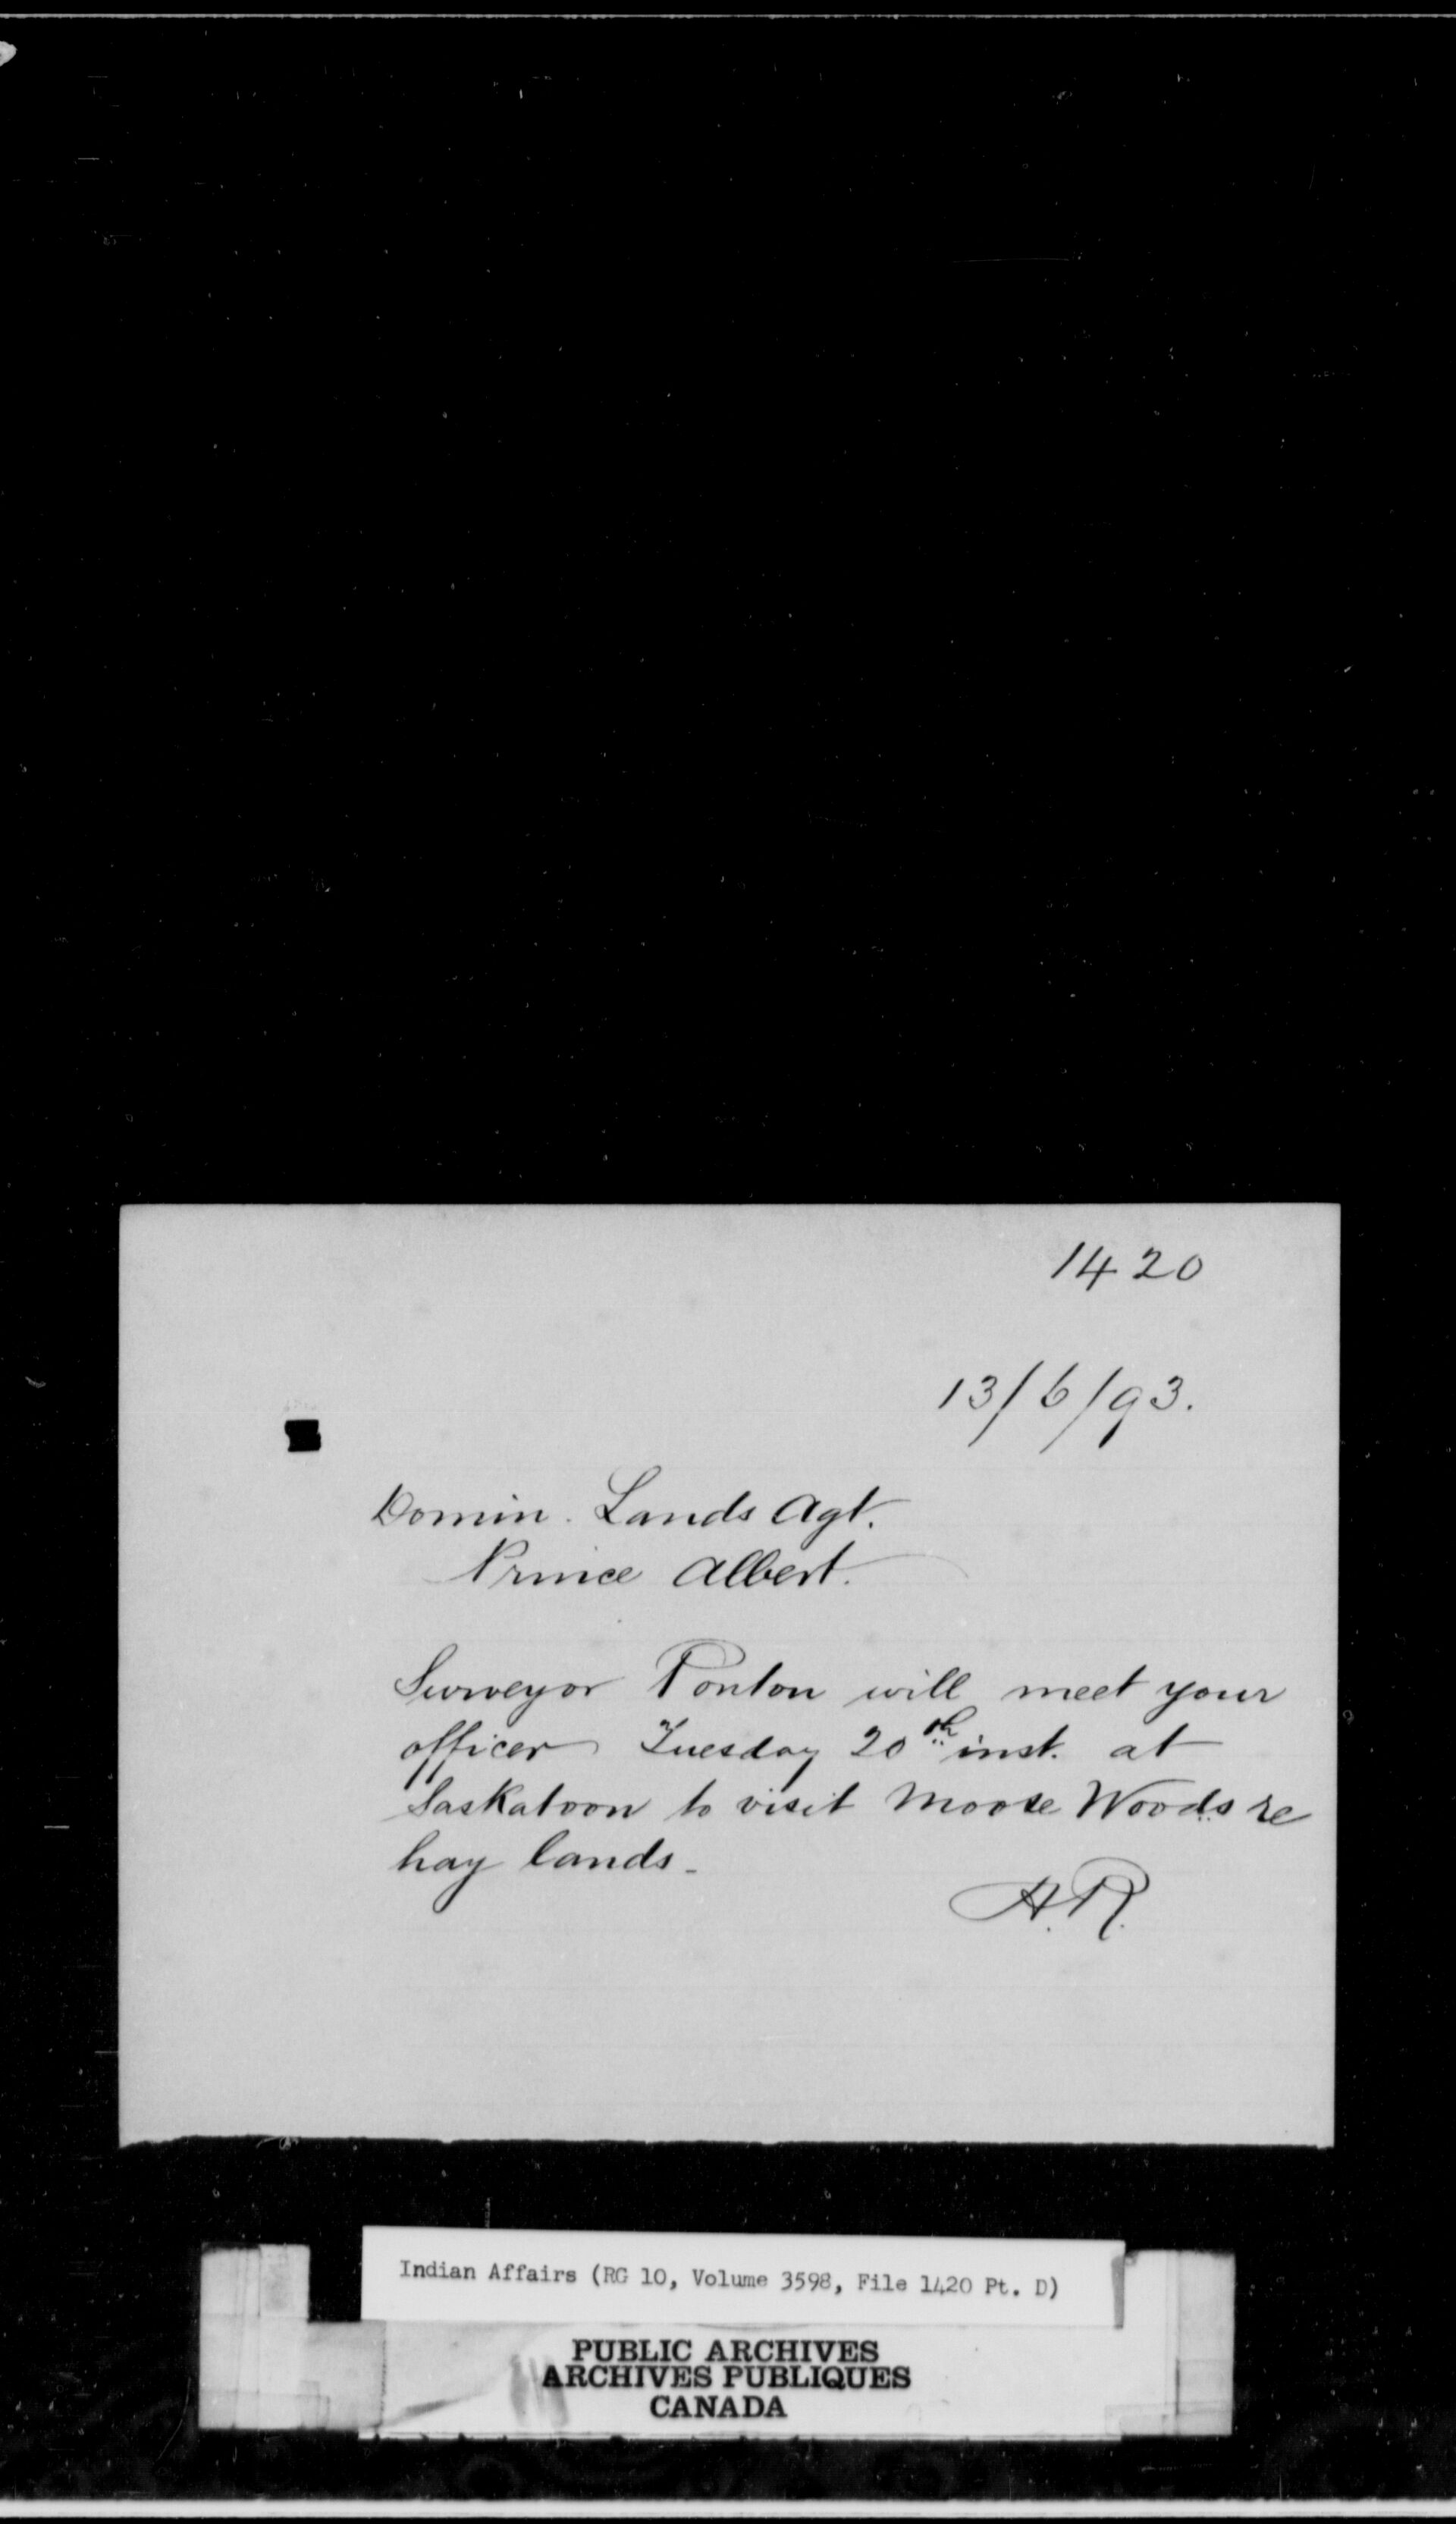 1420
13/6/93.
Domin. Lands Agt.
Prince Albert.
Surveyor Ponton will meet your
officer Tuesday 20th inst. at
Saskatoon to visit Moose Woods re
hay lands.
H.R.
Indian Affairs (RG 10, Volume 3598, File 1420 Pt. D)
PUBLIC ARCHIVES
ARCHIVES PUBLIQUES
CANADA